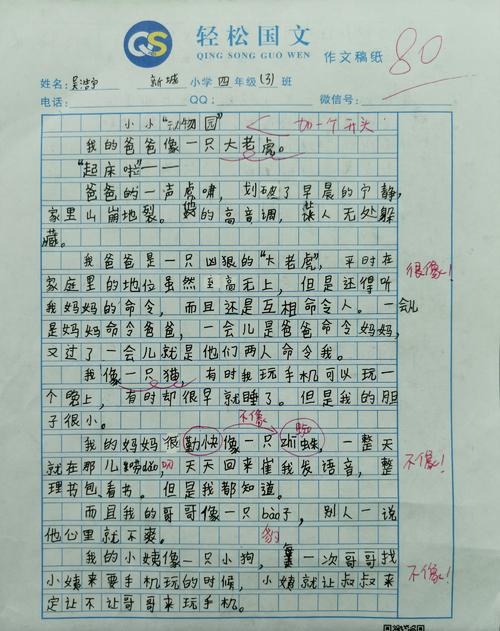 轻松国文
QING SONG GUO WEN
作文稿纸
80
姓名: 吴浩宇 新城 小学 四 年级 (3) 班
电话: QQ: 微信号:
小小“动物园” 加一个开头
我的爸爸像一只大老虎。
“起床啦”——
爸爸的一声虎啸,划破了早晨的宁静,
家里山崩地裂。他的高音调,让人无处躲
藏。
我爸爸是一只凶狠的“大老虎”,平时在
家庭里的地位虽然至高无上,但是还得听 很像!
我妈妈的命令,而且还是互相命令人。一会儿
是妈妈命令爸爸,一会儿是爸爸命令妈妈,
又过了一会儿就是他们两人命令我。
我像一只猫,有时我玩手机可以玩一
个晚上,有时却很早就睡了。但是我的胆
子很小。 不像 蜘
我的妈妈很勤快像一只zhī蛛,一整天
就在那儿唠dāo叨,天天回来催我发语音,整 不像!
理书包看书。但是我都知道。
而且我的哥哥像一只bào子,别人一说
他心里就不爽。 豹
我的小姨像一只小狗,一次哥哥找
小姨来要手机玩的时候,小姨就让叔叔来 不像!
定让不让哥哥来玩手机。